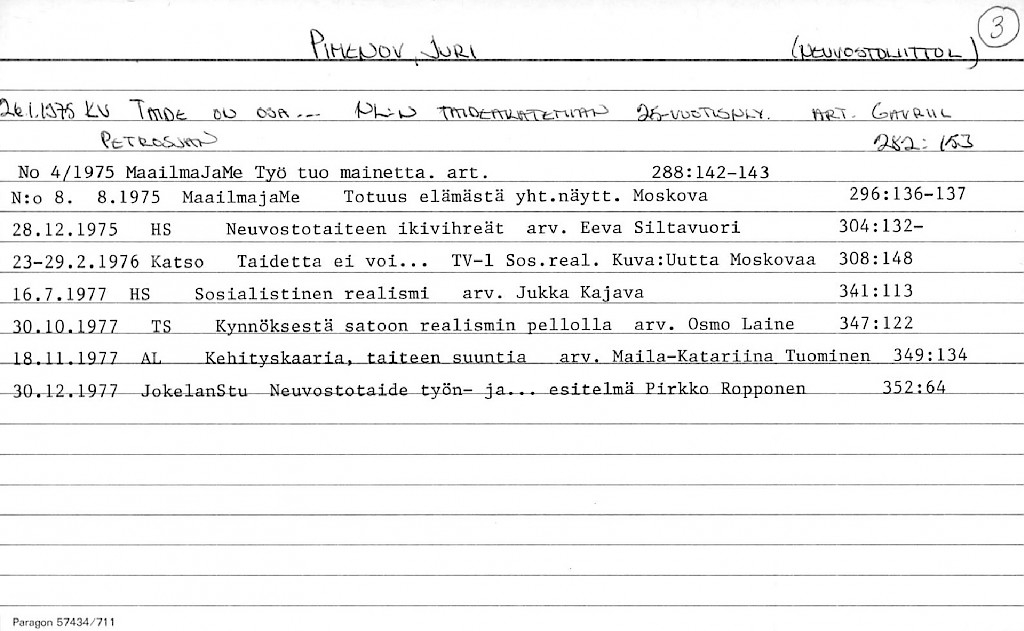 3
PIMENOV, JURI (NEUVOSTOLIITTOL)
26.1.1975 KU TAIDE ON OSA... NL:N TAIDEAKATEMIAN 25-VUOTISNÄY. ART. GAVRIIL
PETROSJAN 282: 153
No 4/1975 MaailmaJaMe Työ tuo mainetta. art. 288:142-143
N:o 8. 8.1975 MaailmajaMe Totuus elämästä yht.näytt. Moskova 296:136-137
28.12.1975 HS Neuvostotaiteen ikivihreät arv. Eeva Siltavuori 304:132-
23-29.2.1976 Katso Taidetta ei voi... TV-1 Sos.real. Kuva:Uutta Moskovaa 308:148
16.7.1977 HS Sosialistinen realismi arv. Jukka Kajava 341:113
30.10.1977 TS Kynnöksestä satoon realismin pellolla arv. Osmo Laine 347:122
18.11.1977 AL Kehityskaaria, taiteen suuntia arv. Maila-Katariina Tuominen 349:134
30.12.1977 JokelanStu Neuvostotaide työn- ja... esitelmä Pirkko Ropponen 352:64
Paragon 57434/711